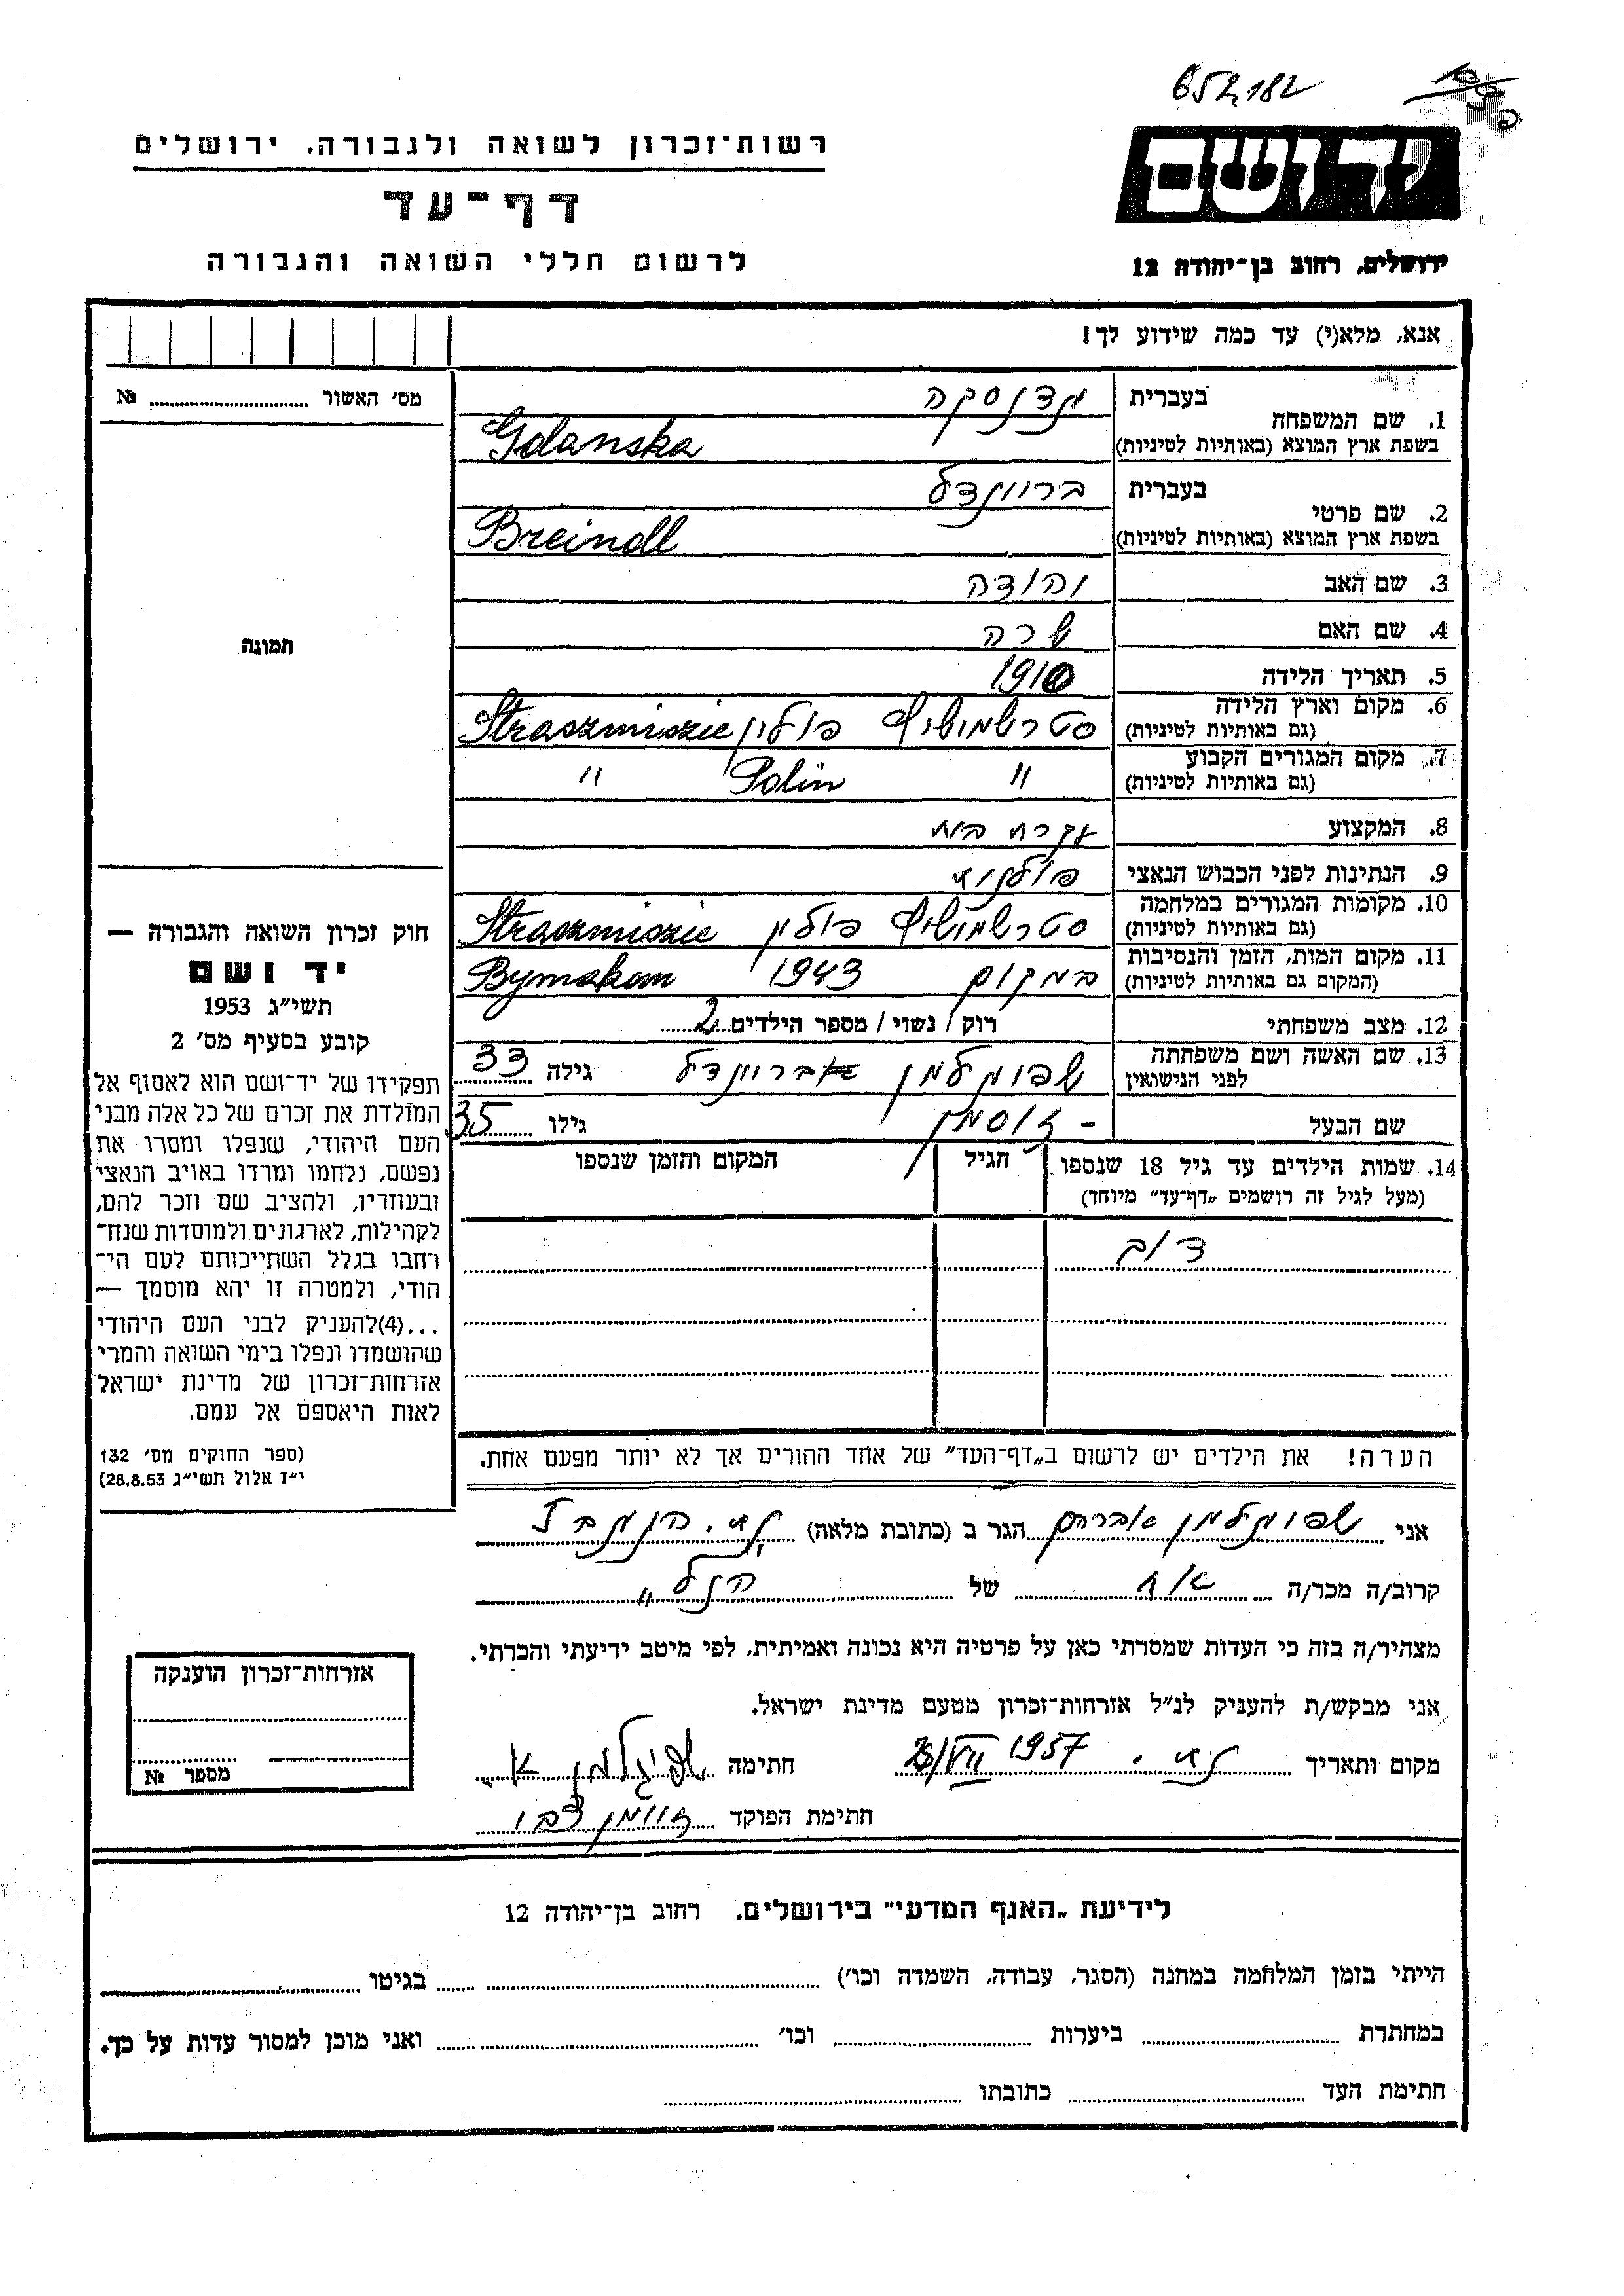 652182
רשות־זכרון לשואה ולגבורה, ירושלים
דף־עד
לרשום חללי השואה והגבורה
ידושם
ירושלים, רחוב בן־יהודה 12
אנא, מלא(י) עד כמה שידוע לך!
מס' האשור № 
תמונה
1. שם המשפחה
בעברית גדנסקה
בשפת ארץ המוצא (באותיות לטיניות) Gdanska
2. שם פרטי
בעברית בריינדל
בשפת ארץ המוצא (באותיות לטיניות) Breindl
3. שם האב יהודה
4. שם האם שרה
5. תאריך הלידה 1910
6. מקום וארץ הלידה
(גם באותיות לטיניות) פולין Straszmiszie
7. מקום המגורים הקבוע
(גם באותיות לטיניות) " Polin "
8. המקצוע עקרת בית
9. הנתינות לפני הכבוש הנאצי פולנית
10. מקומות המגורים במלחמה
(גם באותיות לטיניות) פולין Straszmiszie
11. מקום המות, הזמן והנסיבות
(המקום גם באותיות לטיניות) במקום 1943 Bymakom
12. מצב משפחתי רוק / נשוי / מספר הילדים 2
13. שם האשה ושם משפחתה
לפני הנישואין שפיגלמן בריינדל גילה 33
שם הבעל - זיסמן גילו 35
14. שמות הילדים עד גיל 18 שנספו הגיל המקום והזמן שנספו
(מעל לגיל זה רושמים „דף־עד" מיוחד)
דוב
הערה! את הילדים יש לרשום ב„דף־העד" של אחד ההורים אך לא יותר מפעם אחת.
חוק זכרון השואה והגבורה —
יד ושם
תשי"ג 1953
קובע בסעיף מס' 2
תפקידו של יד־ושם הוא לאסוף אל
המולדת את זכרם של כל אלה מבני
העם היהודי, שנפלו ומסרו את
נפשם, נלחמו ומרדו באויב הנאצי
ובעוזריו, ולהציב שם וזכר להם,
לקהילות, לארגונים ולמוסדות שנח־
רחבו בגלל השתייכותם לעם הי־
הודי, ולמטרה זו יהא מוסמך —
...(4)להעניק לבני העם היהודי
שהושמדו ונפלו בימי השואה והמרי
אזרחות־זכרון של מדינת ישראל
לאות היאספם אל עמם.
(ספר החוקים מס' 132
י"ז אלול תשי"ג 28.8.53)
אני שפיגלמן אברהם הגר ב (כתובת מלאה)
קרוב/ה מכר/ה אח של הנ"ל
מצהיר/ה בזה כי העדות שמסרתי כאן על פרטיה היא נכונה ואמיתית, לפי מיטב ידיעתי והכרתי.
אני מבקש/ת להעניק לנ"ל אזרחות־זכרון מטעם מדינת ישראל.
מקום ותאריך 1957 חתימה שפיגלמן א.
חתימת הפוקד
אזרחות־זכרון הוענקה
מספר №
לידיעת „האגף המדעי" בירושלים. רחוב בן־יהודה 12
הייתי בזמן המלחמה במחנה (הסגר, עבודה, השמדה וכו') בגיטו
במחתרת ביערות וכו' ואני מוכן למסור עדות על כך.
חתימת העד כתובתו